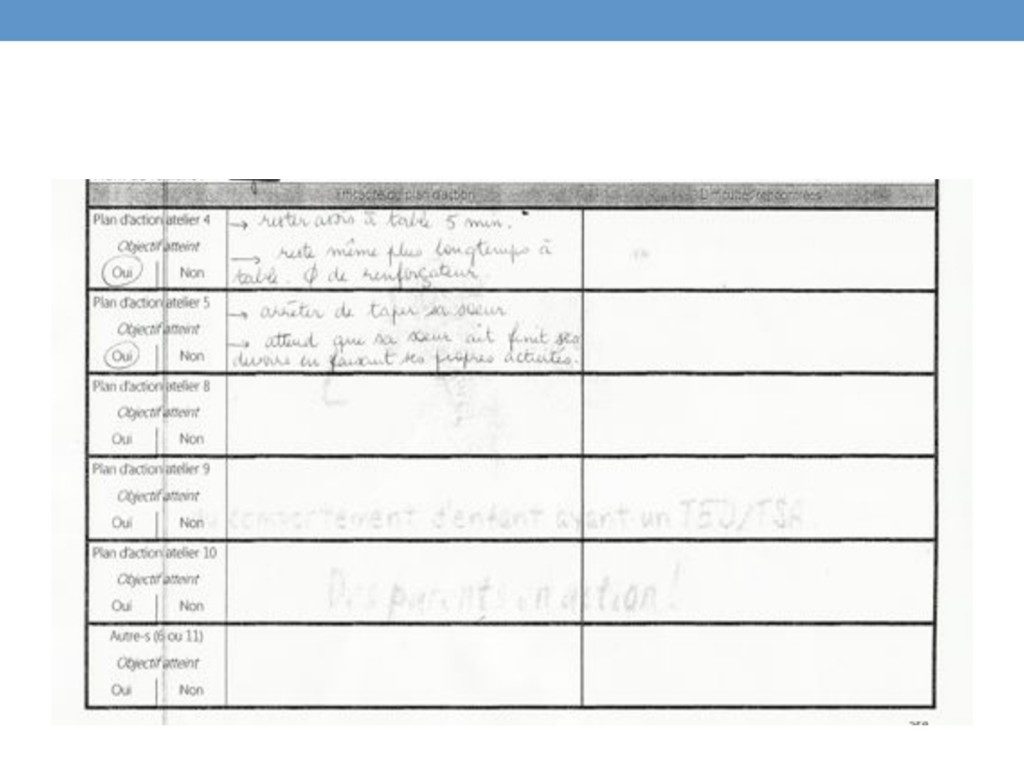 Efficacité du plan d'action Difficultés rencontrées
Plan d'action atelier 4 → rester assis à table 5 min.
Objectif atteint → reste même plus longtemps à
Oui | Non table. Ø de renforçateur
Plan d'action atelier 5 → arrêter de taper sa soeur
Objectif atteint → attend que sa soeur ait finit ses
Oui | Non devoirs en faisant ses propres activités.
Plan d'action atelier 8
Objectif atteint
Oui | Non
Plan d'action atelier 9
Objectif atteint
Oui | Non
du comportement d'enfant ayant un TED/TSA
Plan d'action atelier 10
Objectif atteint
Des parents en action!
Oui | Non
Autre-s (6 ou 11)
Objectif atteint
Oui | Non